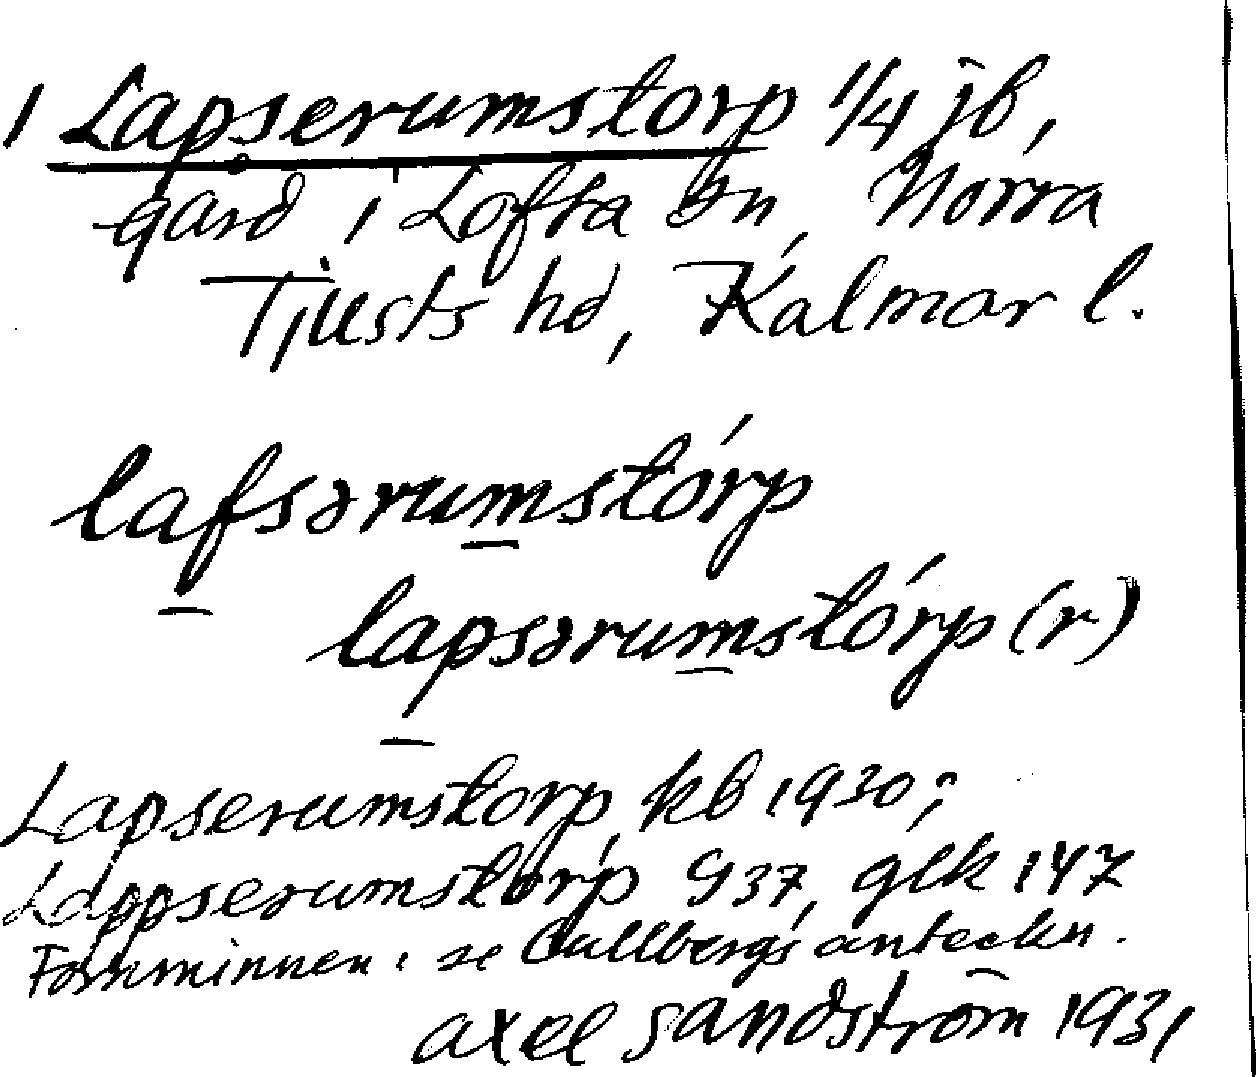 1 Lapserumstorp 1/4 jb,
gård i Lofta sn, Norra
Tjusts hd, Kalmar l.
lafsərumstórp
lapsərumstórp (r)
Lapserumstorp, kb 1930;
Lappserumstorp G37, glk 147
Fornminnen: se Cullbergs anteckn.
axel sandström 1931